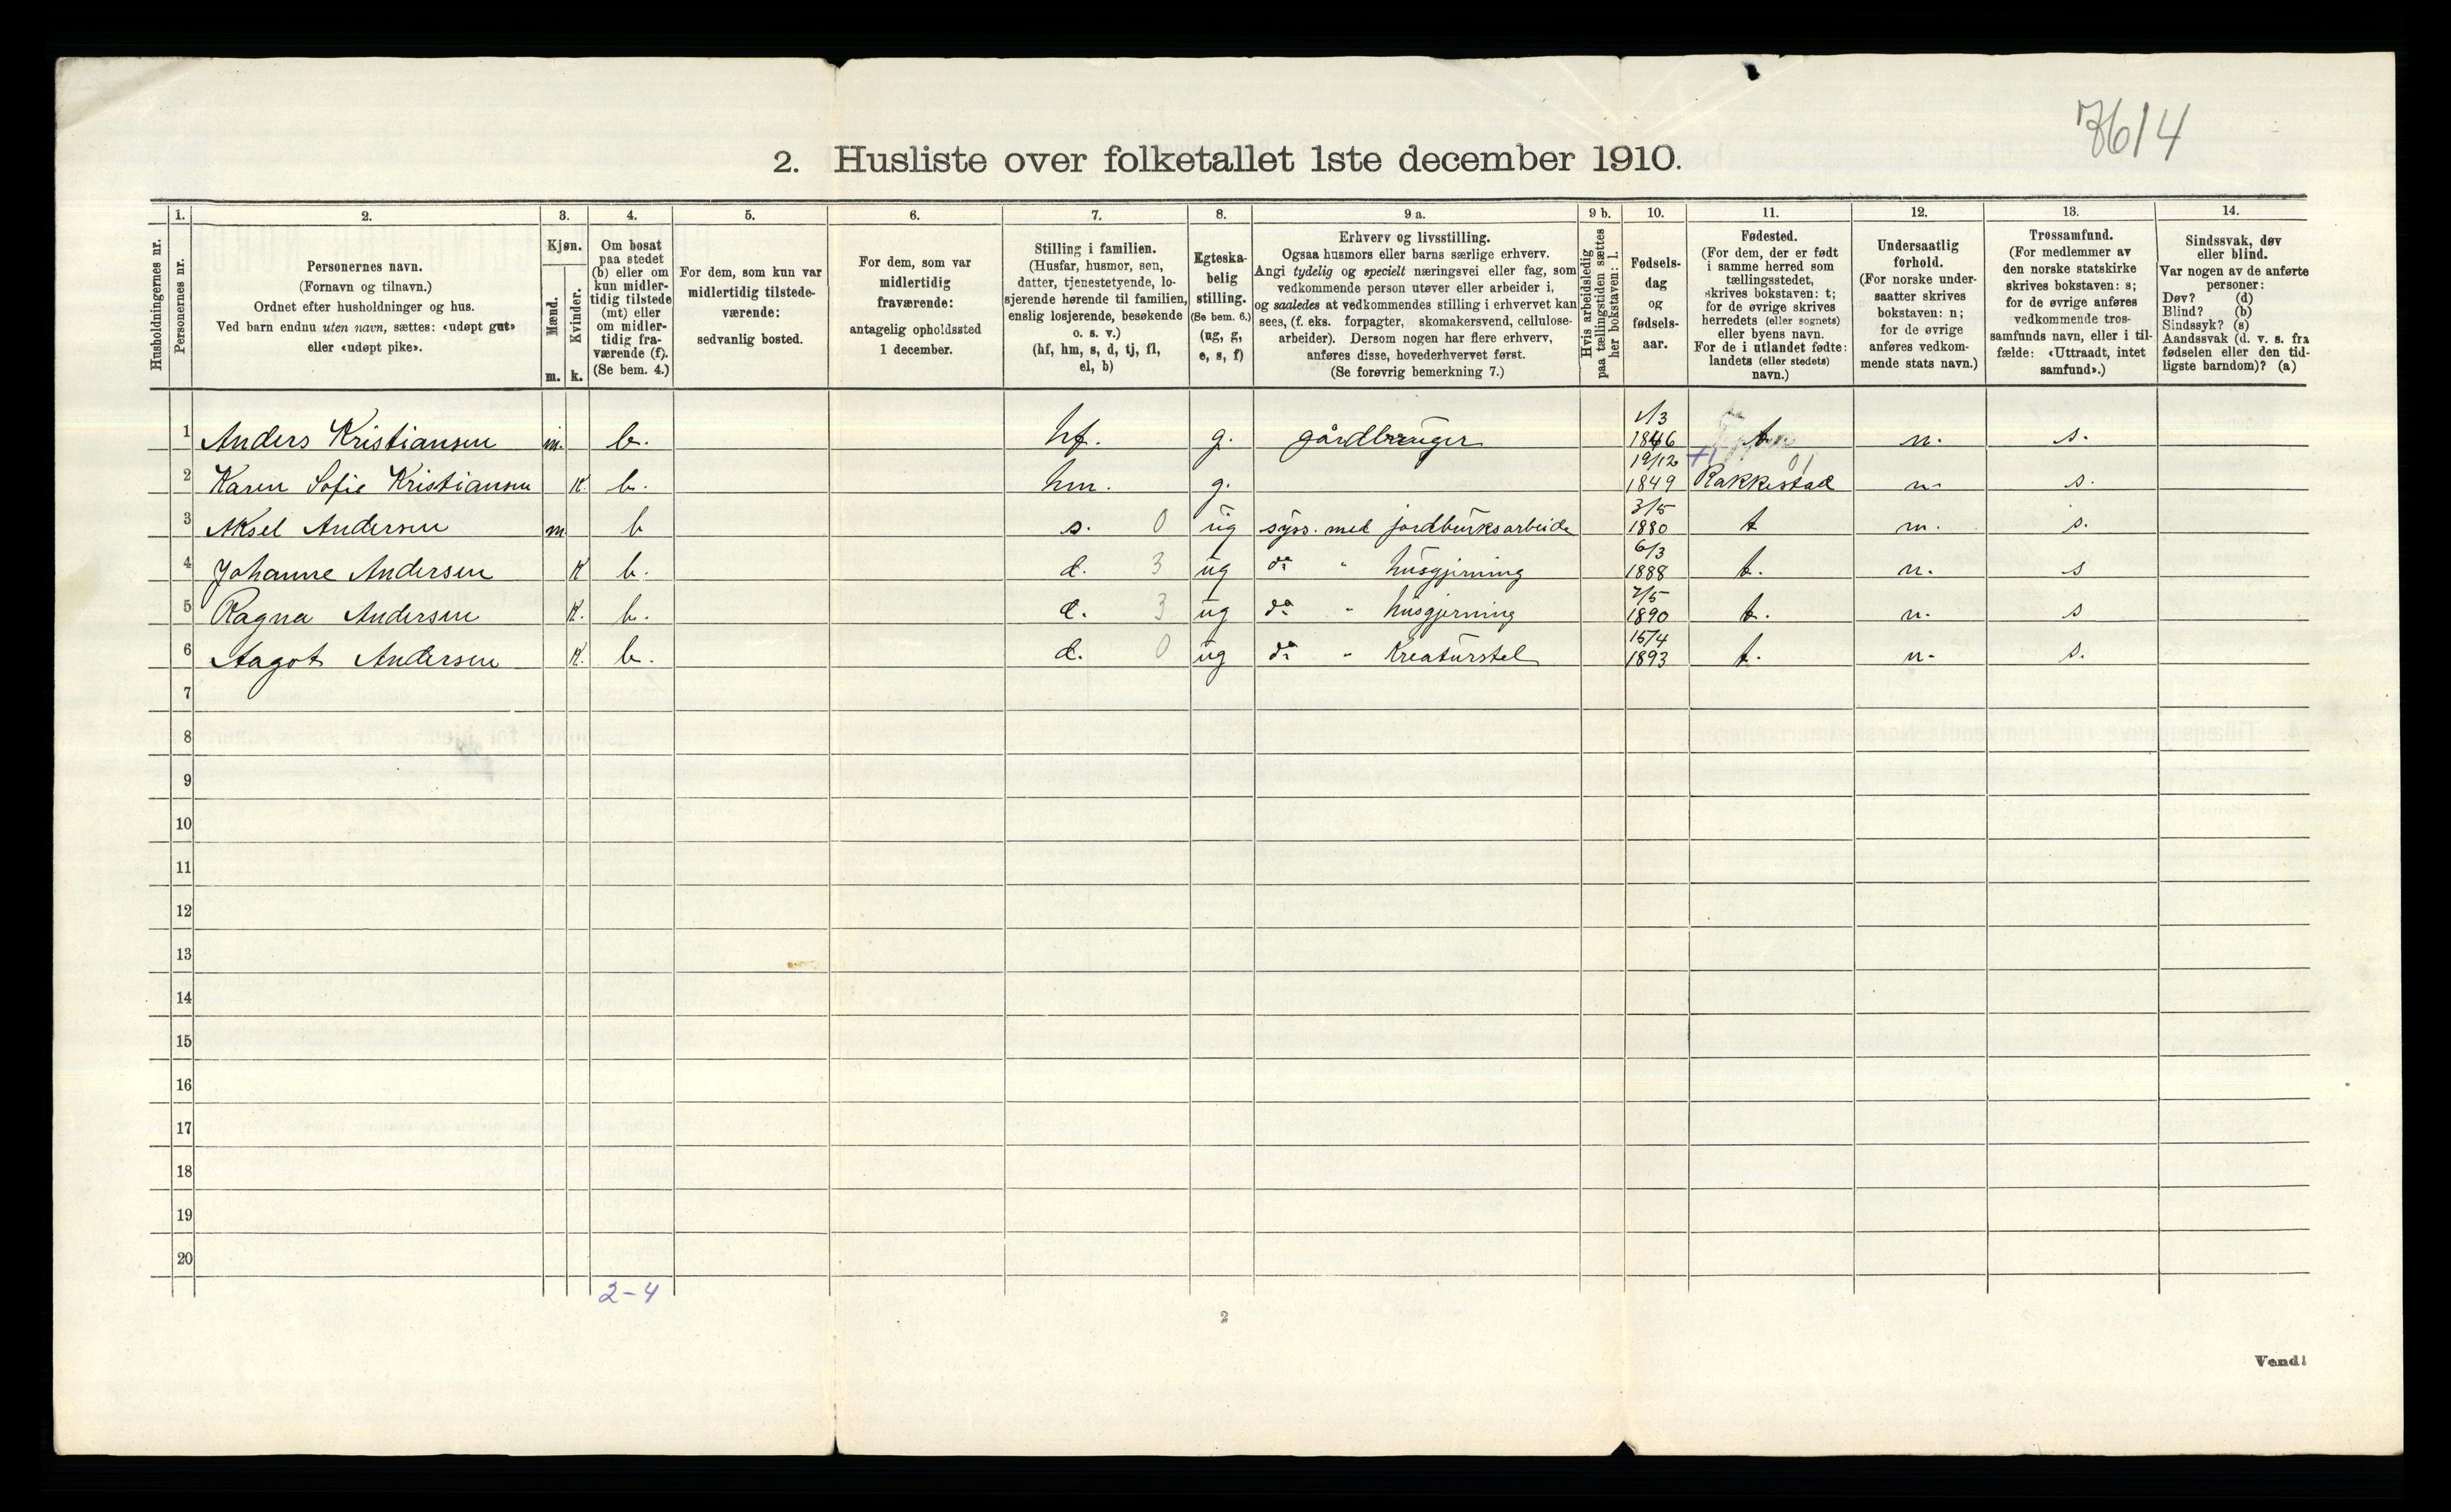 7614
2. Husliste over folketallet 1ste december 1910.
Husholdningernes nr.
1.
Personernes nr.
2.
Personernes navn.
(Fornavn og tilnavn.)
Ordnet efter husholdninger og hus.
Ved barn endnu uten navn, sættes: «udøpt gut»
eller «udøpt pike».
3.
Kjøn.
Mænd.
m.
Kvinder.
k.
4.
Om bosat
paa stedet
(b) eller om
kun midler-
tidig tilstede
(mt) eller
om midler-
tidig fra-
værende (f).
(Se bem. 4.)
5.
For dem, som kun var
midlertidig tilstede-
værende:
sedvanlig bosted.
6.
For dem, som var
midlertidig
fraværende:
antagelig opholdssted
1 december.
7.
Stilling i familien.
(Husfar, husmor, søn,
datter, tjenestetyende, lo-
sjerende hørende til familien,
enslig losjerende, besøkende
o. s. v.)
(hf, hm, s, d, tj, fl,
el, b)
8.
Egteska-
belig
stilling.
(Se bem. 6.)
(ug, g,
e, s, f)
9 a.
Erhverv og livsstilling.
Ogsaa husmors eller barns særlige erhverv.
Angi tydelig og specielt næringsvei eller fag, som
vedkommende person utøver eller arbeider i,
og saaledes at vedkommendes stilling i erhvervet kan
sees, (f. eks. forpagter, skomakersvend, cellulose-
arbeider). Dersom nogen har flere erhverv,
anføres disse, hovederhvervet først.
(Se forøvrig bemerkning 7.)
9 b.
Hvis arbeidsledig
paa tællingstiden sættes
her bokstaven: l.
10.
Fødsels-
dag
og
fødsels-
aar.
11.
Fødested.
(For dem, der er født
i samme herred som
tællingsstedet,
skrives bokstaven: t;
for de øvrige skrives
herredets (eller sognets)
eller byens navn.
For de i utlandet fødte:
landets (eller stedets)
navn.)
12.
Undersaatlig
forhold.
(For norske under-
saatter skrives
bokstaven: n;
for de øvrige
anføres vedkom-
mende stats navn.)
13.
Trossamfund.
(For medlemmer av
den norske statskirke
skrives bokstaven: s;
for de øvrige anføres
vedkommende tros-
samfunds navn, eller i til-
fælde: «Uttraadt, intet
samfund».)
14.
Sindssvak, døv
eller blind.
Var nogen av de anførte
personer:
Døv? (d)
Blind? (b)
Sindssyk? (s)
Aandssvak (d. v. s. fra
fødselen eller den tid-
ligste barndom)? (a)
1 Anders Kristiansen m. b. hf. g. gårdbruger 1/3 1846 t n. s.
2 Karen Sofie Kristiansen K. b. hm. g. 19/12 1849 Rakkestad 01 n. s.
3 Aksel Andersen m b s. 0 ug syss. med jordbruksarbeide 3/5 1880 t n. s.
4 Johanne Andersen K b. d. 3 ug do " husgjerning 6/3 1888 t. n. s
5 Ragna Andersen K. b. d. 3 ug do " husgjerning 7/5 1890 t. n. s
6 Aagot Andersen K. b. d. 0 ug do " Kreaturstel 15/4 1893 t. n. s.
7
8
9
10
11
12
13
14
15
16
17
18
19
20
2-4
2
Vend!